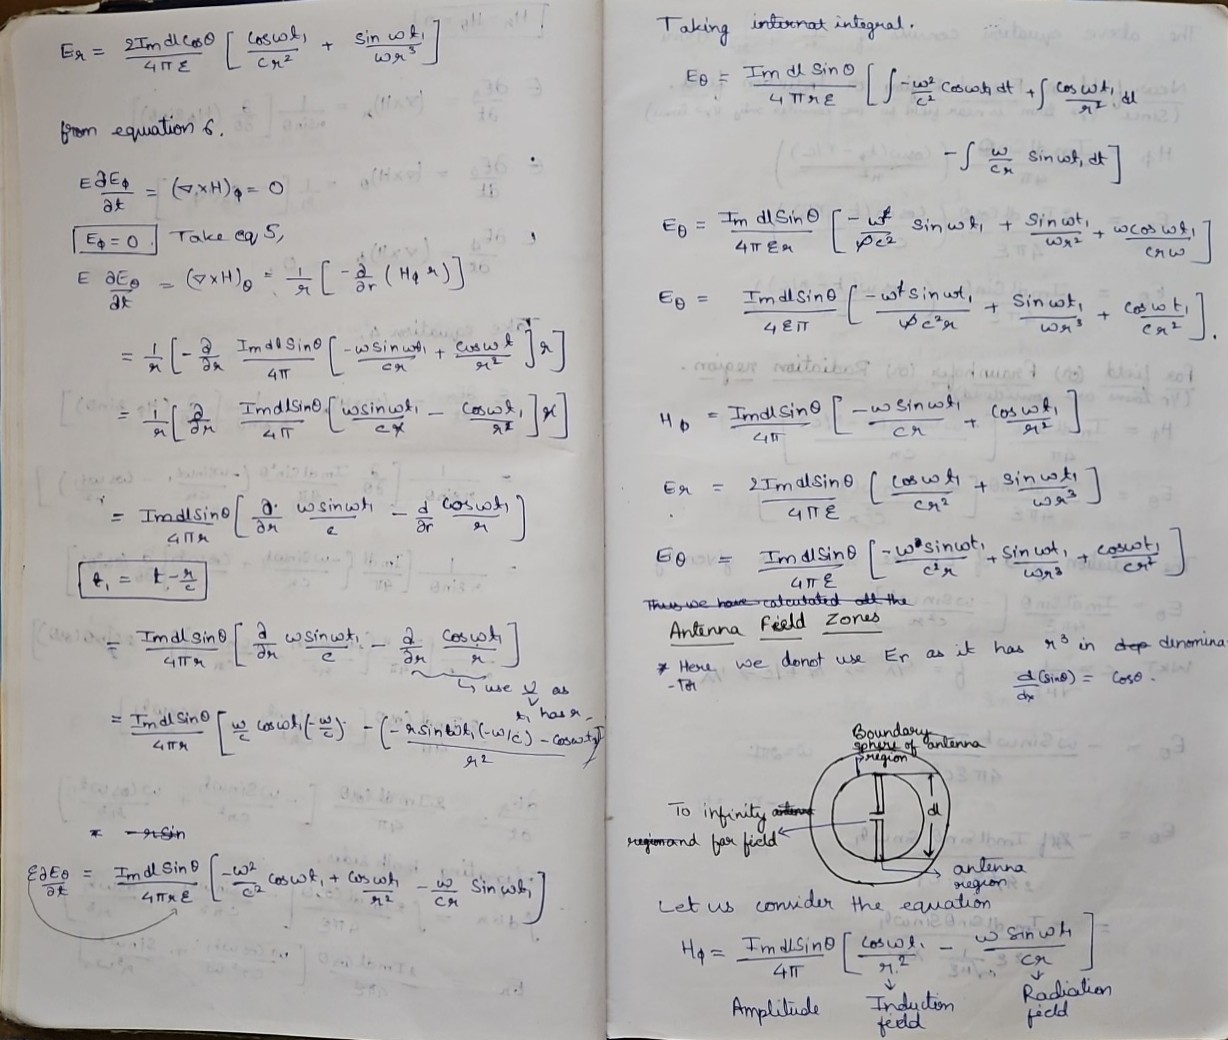 Er = 2Im dl cosθ / 4πε [ cosωt₁ / cr² + sin ωt₁ / ωr³ ]
from equation 6.
E ∂Eϕ / ∂t = (∇×H)ϕ = 0
Eϕ = 0. Take eq 5,
E ∂Eθ / ∂t = (∇×H)θ = 1/r [ -∂/∂r (Hϕ r) ]
= 1/r [ -∂/∂r Im dl Sinθ / 4π [ -ω sin ωt₁ / cr + cos ωt / r² ] r ]
= 1/r [ ∂/∂r Im dl Sinθ / 4π [ ω sin ωt₁ / cr - cos ωt₁ / r² ] r ]
= Im dl Sinθ / 4πr [ ∂/∂r ω sin ωt₁ / c - d/dr cos ωt₁ / r ]
t₁ = t - r/c
= Im dl Sinθ / 4πr [ ∂/∂r ω sin ωt₁ / c - ∂/∂r cos ωt₁ / r ]
↳ use u/v as
t₁ has r.
= Im dl Sinθ / 4πr [ ω/c cos ωt₁ (-ω/c) - (-r sin ωt₁ (-ω/c) - cos ωt₁) / r² ]
* -r sin
ε∂Eθ / ∂t = Im dl Sinθ / 4πrε [ -ω²/c² cos ωt₁ + cos ωt₁ / r² - ω/cr Sin ωt₁ ]
Taking internat integral.
Eθ = Im dl Sinθ / 4πrε [ ∫ -ω²/c² cos ωt₁ dt + ∫ cos ωt₁ / r² dt
- ∫ ω/cr sin ωt₁ dt ]
Eθ = Im dl Sinθ / 4πεr [ -ω² / ωc² sin ωt₁ + Sin ωt₁ / ωr² + ω cos ωt₁ / crω ]
Eθ = Im dl Sinθ / 4επ [ -ω² sin ωt₁ / ωc²r + Sin ωt₁ / ωr³ + cos ωt₁ / cr² ].
Hϕ = Im dl Sinθ / 4π [ -ω Sin ωt₁ / cr + cos ωt₁ / r² ]
Er = 2Im dl Sinθ / 4πε [ cos ωt₁ / cr² + sin ωt₁ / ωr³ ]
Eθ = Im dl Sinθ / 4πε [ -ω sin ωt₁ / c²r + Sin ωt₁ / ωr³ + cos ωt₁ / cr² ]
Thus we have calculated all the
Antenna Field Zones
* Here we donot use Er as it has r³ in denomina
-tor
d/dx (sinθ) = cosθ.
Boundary
sphere of antenna
region
To infinity antenna
region and far field
dl
antenna
region
Let us consider the equation
Hϕ = Im dl Sinθ / 4π [ cos ωt₁ / r² - ω Sin ωt₁ / cr ]
Amplitude Induction field Radiation field